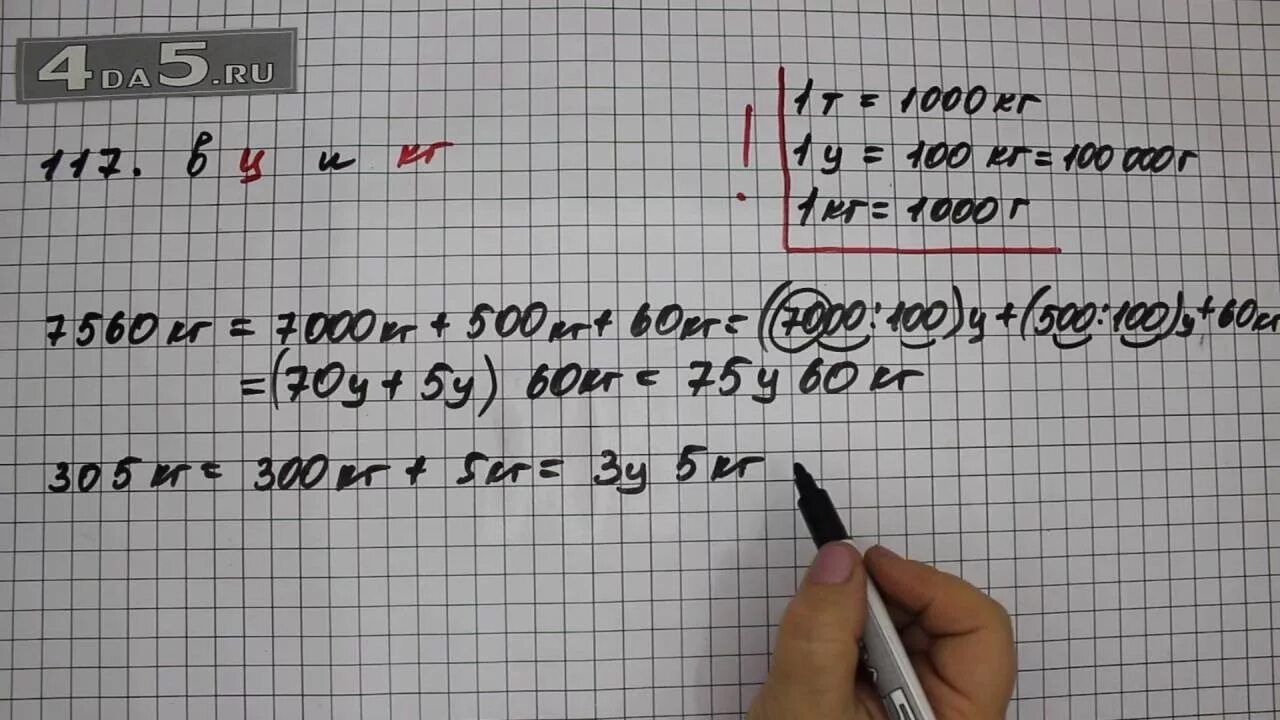 4DA5.RU
117. в ц и кг
1т = 1000 кг
1ц = 100 кг = 100 000 г
1 кг = 1000 г
7560 кг = 7000 кг + 500 кг + 60 кг = (7000:100)ц + (500:100)ц + 60 кг
= (70ц + 5ц) 60 кг = 75ц 60 кг
305 кг = 300 кг + 5 кг = 3ц 5 кг